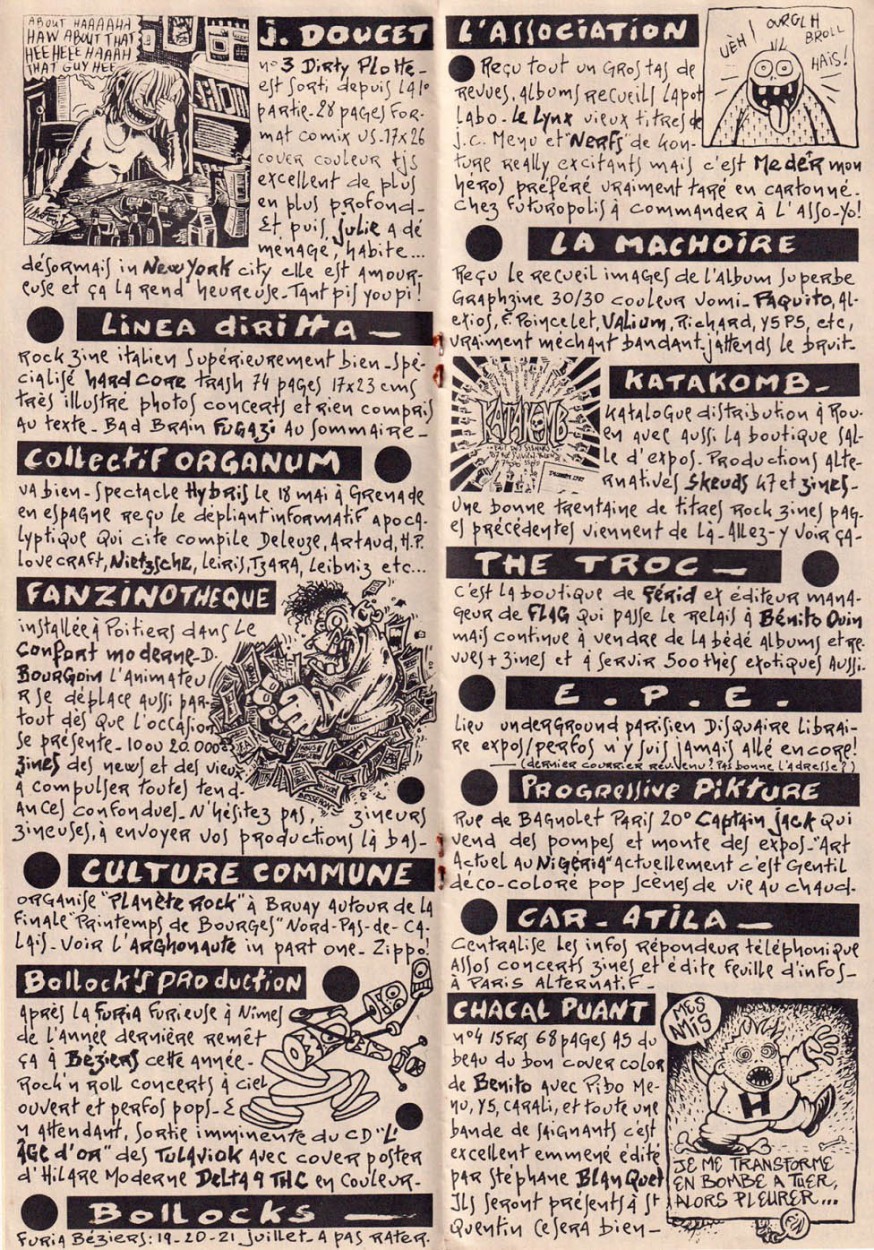 ABOUT HAAAAHA
HAW ABOUT THAT
HEE HEEE HAAAH
THAT GUY HEE
J. DOUCET
n° 3 Dirty Plotte_
est sorti depuis la 1°
partie_28 pages for-
mat comix US_17x26
cover couleur tjs
excellent de plus
en plus profond_
Et puis Julie a dé
ménagé, habite...
désormais in New York city elle est amour-
euse et ça la rend heureuse_Tant pis youpi!
LINEA diritta _
Rock zine italien Supérieurement bien_Spé-
cialisé HARD CORE trash 74 pages 17x23 cms
très illustré photos concerts et rien compris
au texte_ Bad Brain FUGAZi Au Sommaire_
Collectif ORGANUM
va bien_Spectacle Hybris le 18 mai à Grenade
en espagne reçu le dépliant informatif apoca-
lyptique Qui cite compile Deleuze, Artaud, H.P.
Lovecraft, Nietzsche, Leiris, TZARA, Leibniz etc...
FANZINOTHEQUE
installée à Poitiers dans le
Confort moderne_D.
BOURGOIN l'Animateu
r se déplace aussi par-
tout dès que l'occasion
se présente_10 ou 20.000
zines des news et des vieux
à compulser toutes tend-
ances confondues_N'hésitez pas, zineurs
zineuses, à envoyer vos productions là bas_
CULTURE COMMUNE
organise "Planète Rock" à Bruay autour de la
finale "Printemps de Bourges" Nord-Pas-de-Ca-
lais_Voir l'ARGhonaute in part one_ Zippo!
Bollock's production
Après la Furia Furieuse à Nîmes
de l'année dernière remêt
ça à Béziers cette année_
Rock'n roll concerts à ciel
ouvert et perfos pops_ E
n attendant, sortie imminente du CD "L'
Âge d'or" des Tulaviok avec cover poster
d'Hilare Moderne Delta 9 THC en Couleur_
Bollocks _
Furia Béziers: 19-20-21 juillet_A pas rater.
L'ASSOCIATION
UÈH! OURGLH
BROLL
HAÏS!
Reçu tout un Gros tas de
revues, albums recueils Lapot
Labo_Le Lynx vieux titres de
J.C. Menu et "Nerfs" de Kon-
ture really excitants mais c'est Meder mon
héros préféré vraiment taré en cartonné_
Chez Futuropolis à commander à L'Asso_Yo!
LA MACHOIRE
Reçu le recueil images de l'Album Superbe
Graphzine 30/30 couleur Vomi_PAQuito, Al-
exios, F. Poincelet, Valium, Richard, Y5P5, etc,
vraiment méchant bandant j'attends le bruit_
KATAKOMB
KATAKOMB_
Katalogue distribution à Rou-
en avec aussi la boutique sal-
le d'expos. Productions Alte-
rnatives Skeuds 47 et zines_
Une bonne trentaine de titres Rock zines pag-
es précédentes viennent de là_Allez-y voir ça_
THE TROC _
c'est la boutique de Férid ex éditeur mana-
geur de FLAG qui passe le relais à Bénito Ouin
mais continue à vendre de la bédé albums et re-
vues + zines et à servir 500 thés exotiques Aussi_
E . P . E .
Lieu underground parisien Disquaire librai-
re expos/perfos n'y suis jamais allé encore!
(dernier courrier revenu? Pas bonne l'adresse?)
Progressive Pikture
Rue de Bagnolet Paris 20° Captain Jack qui
vend des pompes et monte des expos_"Art
Actuel au Nigéria" Actuellement c'est Gentil
déco-coloré pop scènes de vie au chaud_
CAR_ATILA _
Centralise les infos répondeur téléphonique
Assos concerts zines et édite feuille d'infos_
à PARIS ALTERNATIF_
CHACAL PUANT
n°4 15 Frs 68 pages A5 du
beau du bon cover color
de Benito avec Pibo Me-
nu, Y5, CARALi, et toute une
bande de saignants c'est
excellent emmené édité
par Stéphane BlanQuet
Ils seront présents à St
Quentin Ce sera bien_
MES
AMIS
H
JE ME TRANSFORME
EN BOMBE A TUER,
ALORS PLEURER...